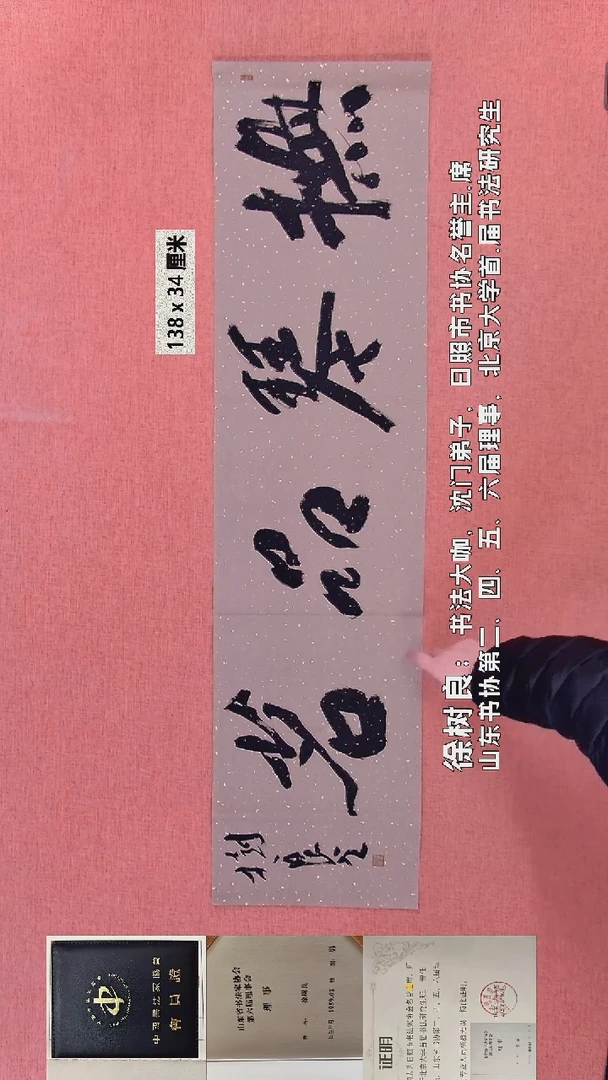 138 x 34 厘米
撫琴品茗
樹良
徐树良：书法大咖，沈门弟子，日照市书协名誉主席
山东书协第二、四、五、六届理事，北京大学首届书法研究生
中國書法家協會
會員證
山东省书法家协会
第六届理事会
理事
证明